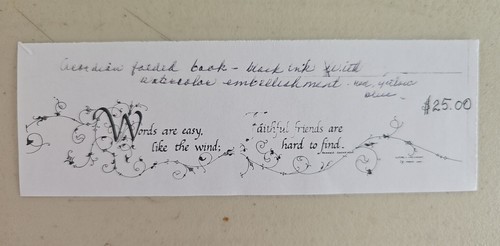 Accordian folded book - black ink with
watercolor embellishment
$25.00
Words are easy,
like the wind;
Faithful friends are
hard to find.